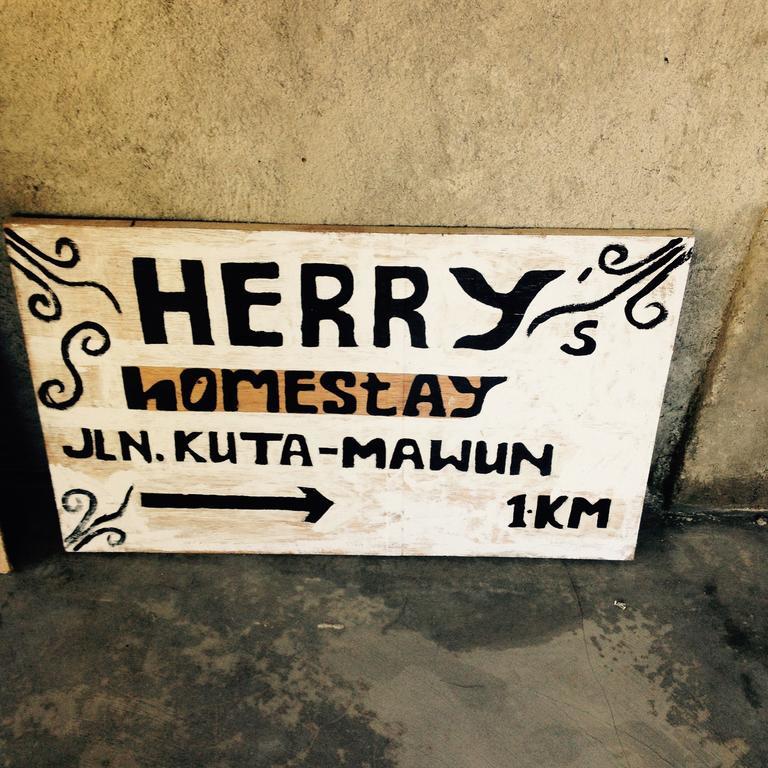 HERRY's
hOMEStAY
JLN. KUTA-MAWUN
1.KM